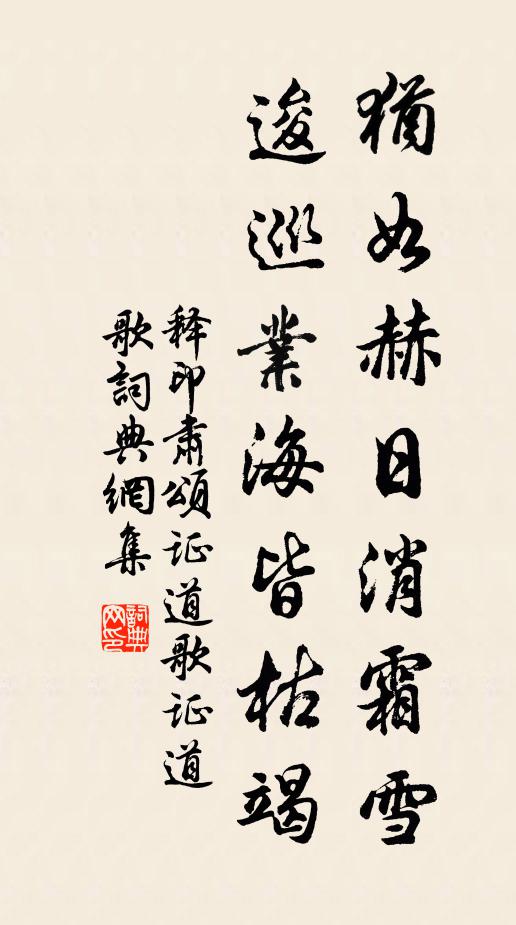 猶如赫日消霜雪
逡巡業海皆枯竭
释印肅頌证道歌证道
歌詞典網集
詞典网印